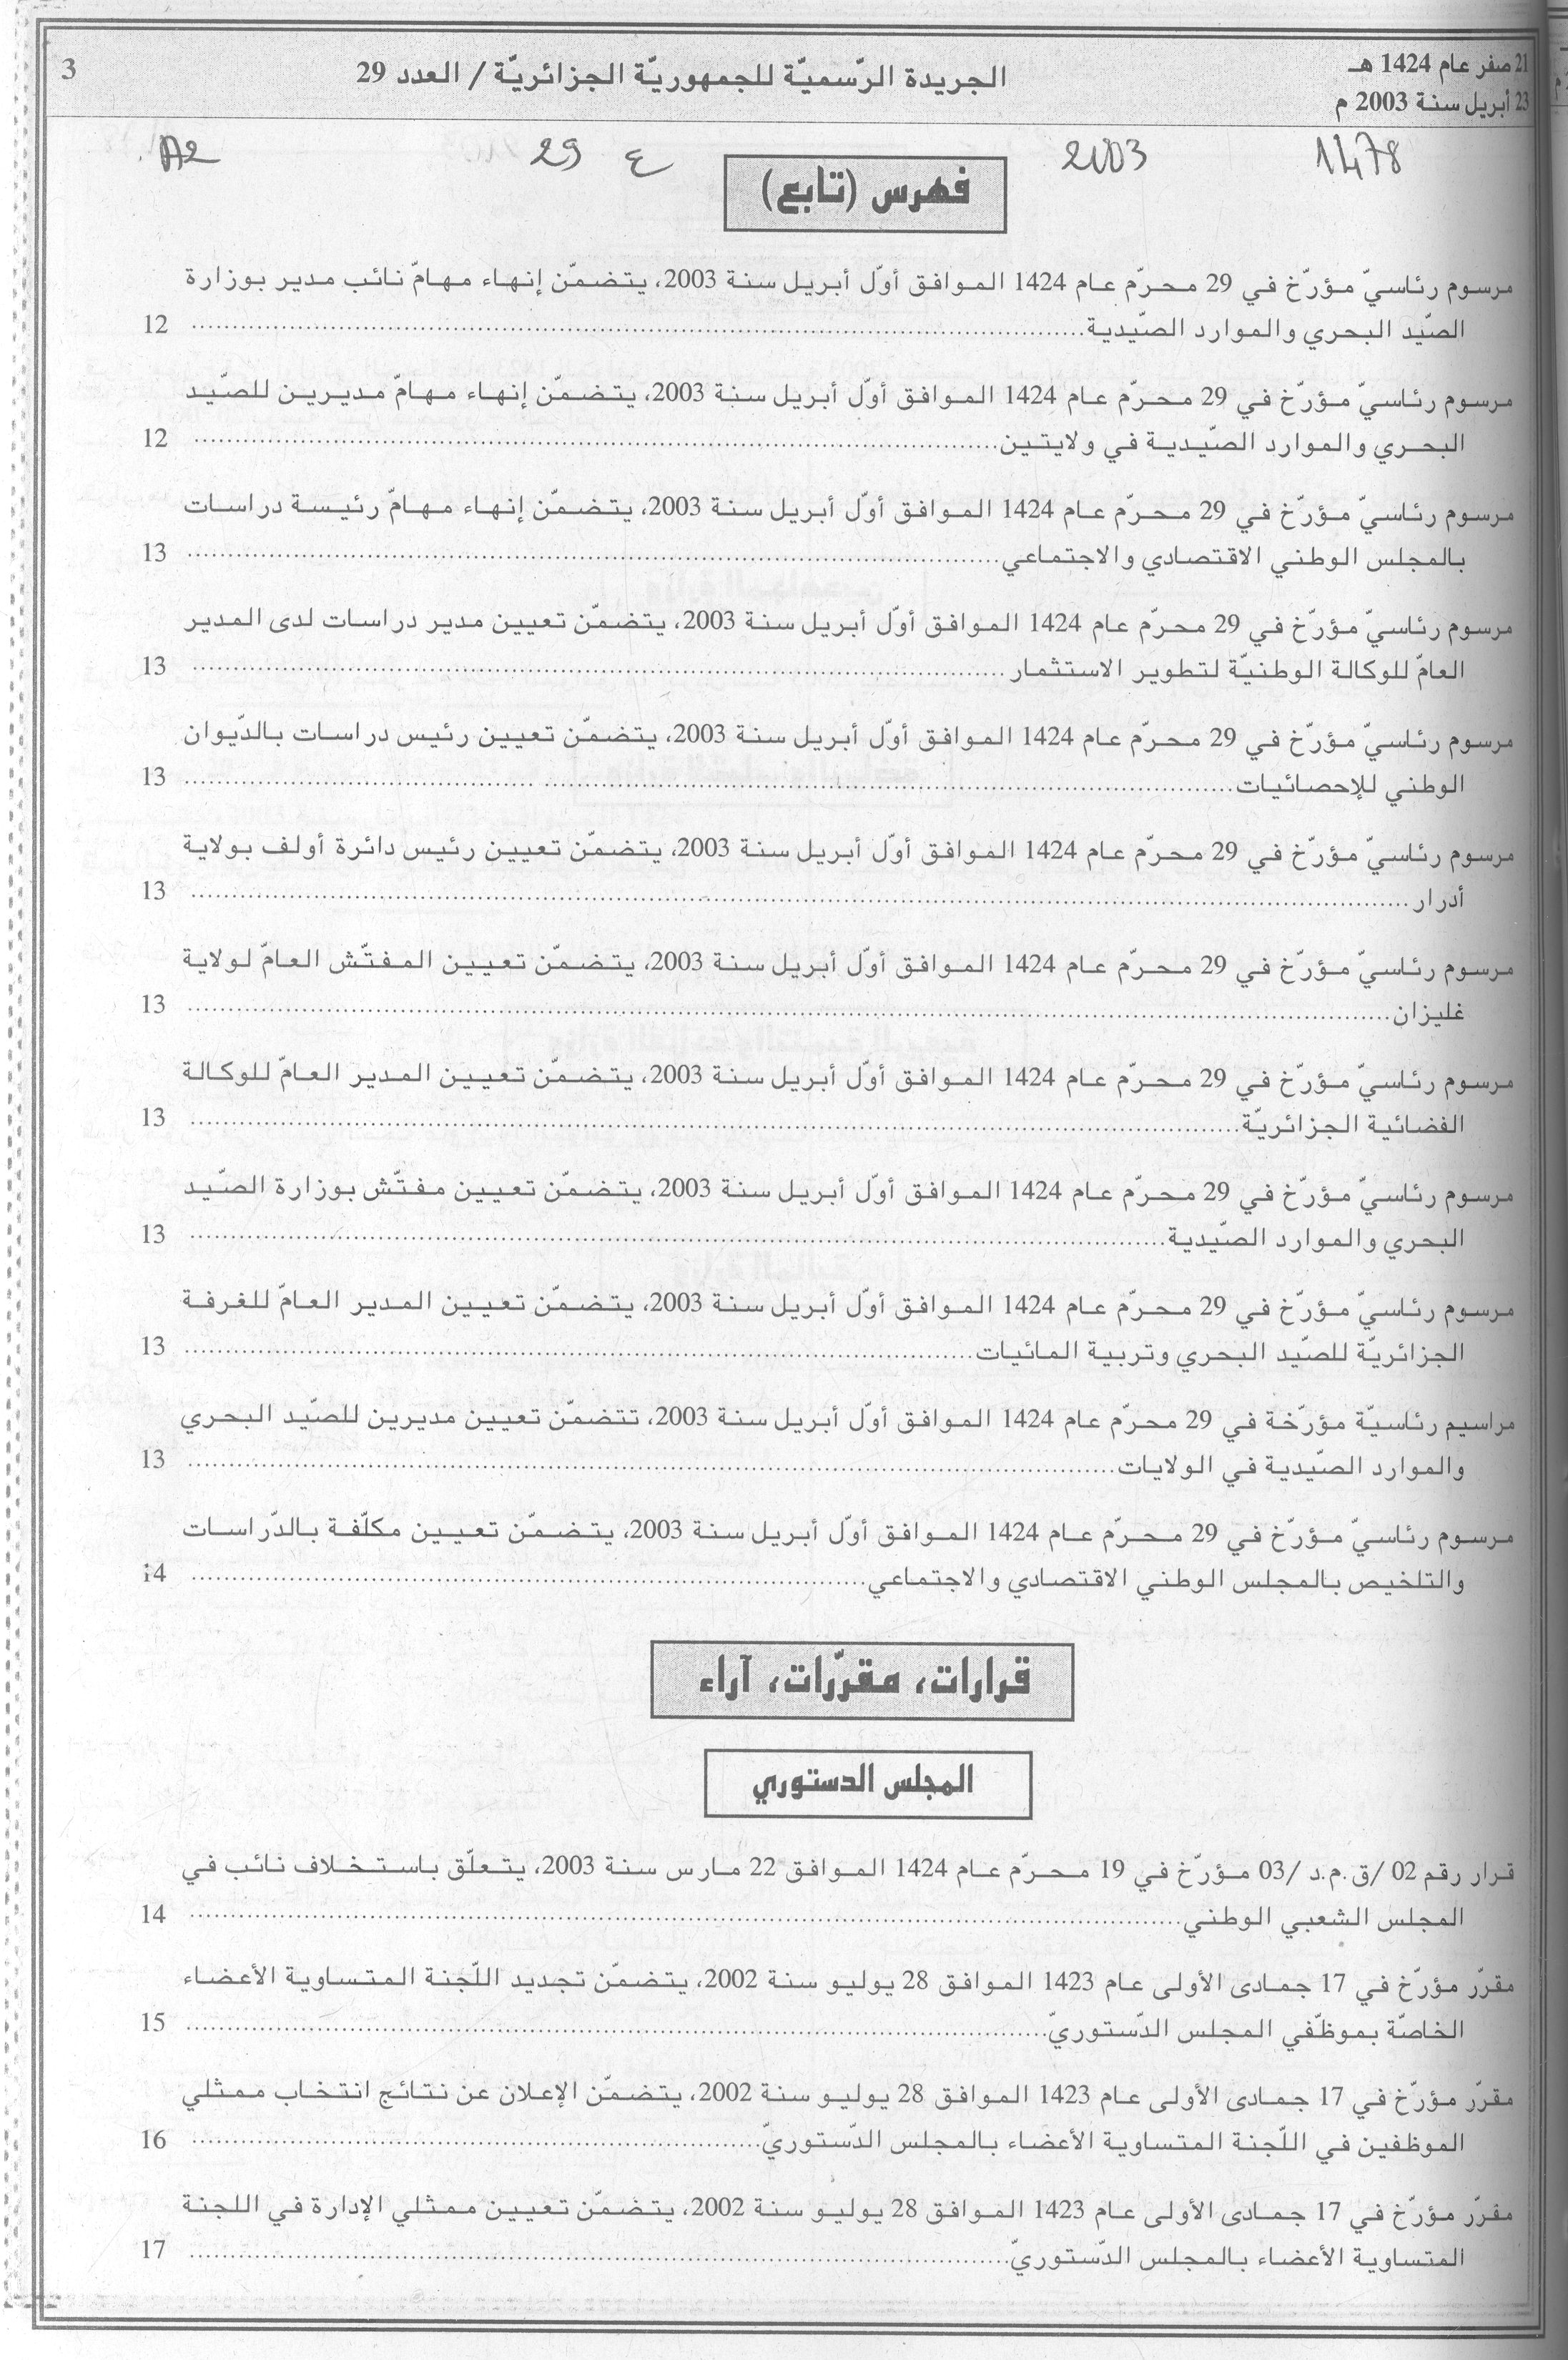 21 صفر عام 1424 هـ
23 أبريل سنة 2003 م
الجريدة الرّسميّة للجمهوريّة الجزائريّة / العدد 29
3
1478
2003
ع 29
A2
فهرس (تابع)
مرسوم رئاسيّ مؤرّخ في 29 محرّم عام 1424 الموافق أوّل أبريل سنة 2003، يتضمّن إنهاء مهامّ نائب مدير بوزارة
الصّيد البحري والموارد الصّيدية.......... 12
مرسوم رئاسيّ مؤرّخ في 29 محرّم عام 1424 الموافق أوّل أبريل سنة 2003، يتضمّن إنهاء مهامّ مديرين للصّيد
البحري والموارد الصّيدية في ولايتين.......... 12
مرسوم رئاسيّ مؤرّخ في 29 محرّم عام 1424 الموافق أوّل أبريل سنة 2003، يتضمّن إنهاء مهامّ رئيسة دراسات
بالمجلس الوطني الاقتصادي والاجتماعي.......... 13
مرسوم رئاسيّ مؤرّخ في 29 محرّم عام 1424 الموافق أوّل أبريل سنة 2003، يتضمّن تعيين مدير دراسات لدى المدير
العامّ للوكالة الوطنيّة لتطوير الاستثمار.......... 13
مرسوم رئاسيّ مؤرّخ في 29 محرّم عام 1424 الموافق أوّل أبريل سنة 2003، يتضمّن تعيين رئيس دراسات بالدّيوان
الوطني للإحصائيات.......... 13
مرسوم رئاسيّ مؤرّخ في 29 محرّم عام 1424 الموافق أوّل أبريل سنة 2003، يتضمّن تعيين رئيس دائرة أولف بولاية
أدرار.......... 13
مرسوم رئاسيّ مؤرّخ في 29 محرّم عام 1424 الموافق أوّل أبريل سنة 2003، يتضمّن تعيين المفتّش العامّ لولاية
غليزان.......... 13
مرسوم رئاسيّ مؤرّخ في 29 محرّم عام 1424 الموافق أوّل أبريل سنة 2003، يتضمّن تعيين المدير العامّ للوكالة
الفضائية الجزائريّة.......... 13
مرسوم رئاسيّ مؤرّخ في 29 محرّم عام 1424 الموافق أوّل أبريل سنة 2003، يتضمّن تعيين مفتّش بوزارة الصّيد
البحري والموارد الصّيدية.......... 13
مرسوم رئاسيّ مؤرّخ في 29 محرّم عام 1424 الموافق أوّل أبريل سنة 2003، يتضمّن تعيين المدير العامّ للغرفة
الجزائريّة للصّيد البحري وتربية المائيات.......... 13
مراسيم رئاسيّة مؤرّخة في 29 محرّم عام 1424 الموافق أوّل أبريل سنة 2003، تتضمّن تعيين مديرين للصّيد البحري
والموارد الصّيدية في الولايات.......... 13
مرسوم رئاسيّ مؤرّخ في 29 محرّم عام 1424 الموافق أوّل أبريل سنة 2003، يتضمّن تعيين مكلّفة بالدّراسات
والتلخيص بالمجلس الوطني الاقتصادي والاجتماعي.......... 14
قرارات، مقرّرات، آراء
المجلس الدستوري
قرار رقم 02 /ق.م.د /03 مؤرّخ في 19 محرّم عام 1424 الموافق 22 مارس سنة 2003، يتعلّق باستخلاف نائب في
المجلس الشعبي الوطني.......... 14
مقرّر مؤرّخ في 17 جمادى الأولى عام 1423 الموافق 28 يوليو سنة 2002، يتضمّن تجديد اللّجنة المتساوية الأعضاء
الخاصّة بموظّفي المجلس الدّستوريّ.......... 15
مقرّر مؤرّخ في 17 جمادى الأولى عام 1423 الموافق 28 يوليو سنة 2002، يتضمّن الإعلان عن نتائج انتخاب ممثلي
الموظفين في اللّجنة المتساوية الأعضاء بالمجلس الدّستوريّ.......... 16
مقرّر مؤرّخ في 17 جمادى الأولى عام 1423 الموافق 28 يوليو سنة 2002، يتضمّن تعيين ممثلي الإدارة في اللجنة
المتساوية الأعضاء بالمجلس الدّستوريّ.......... 17